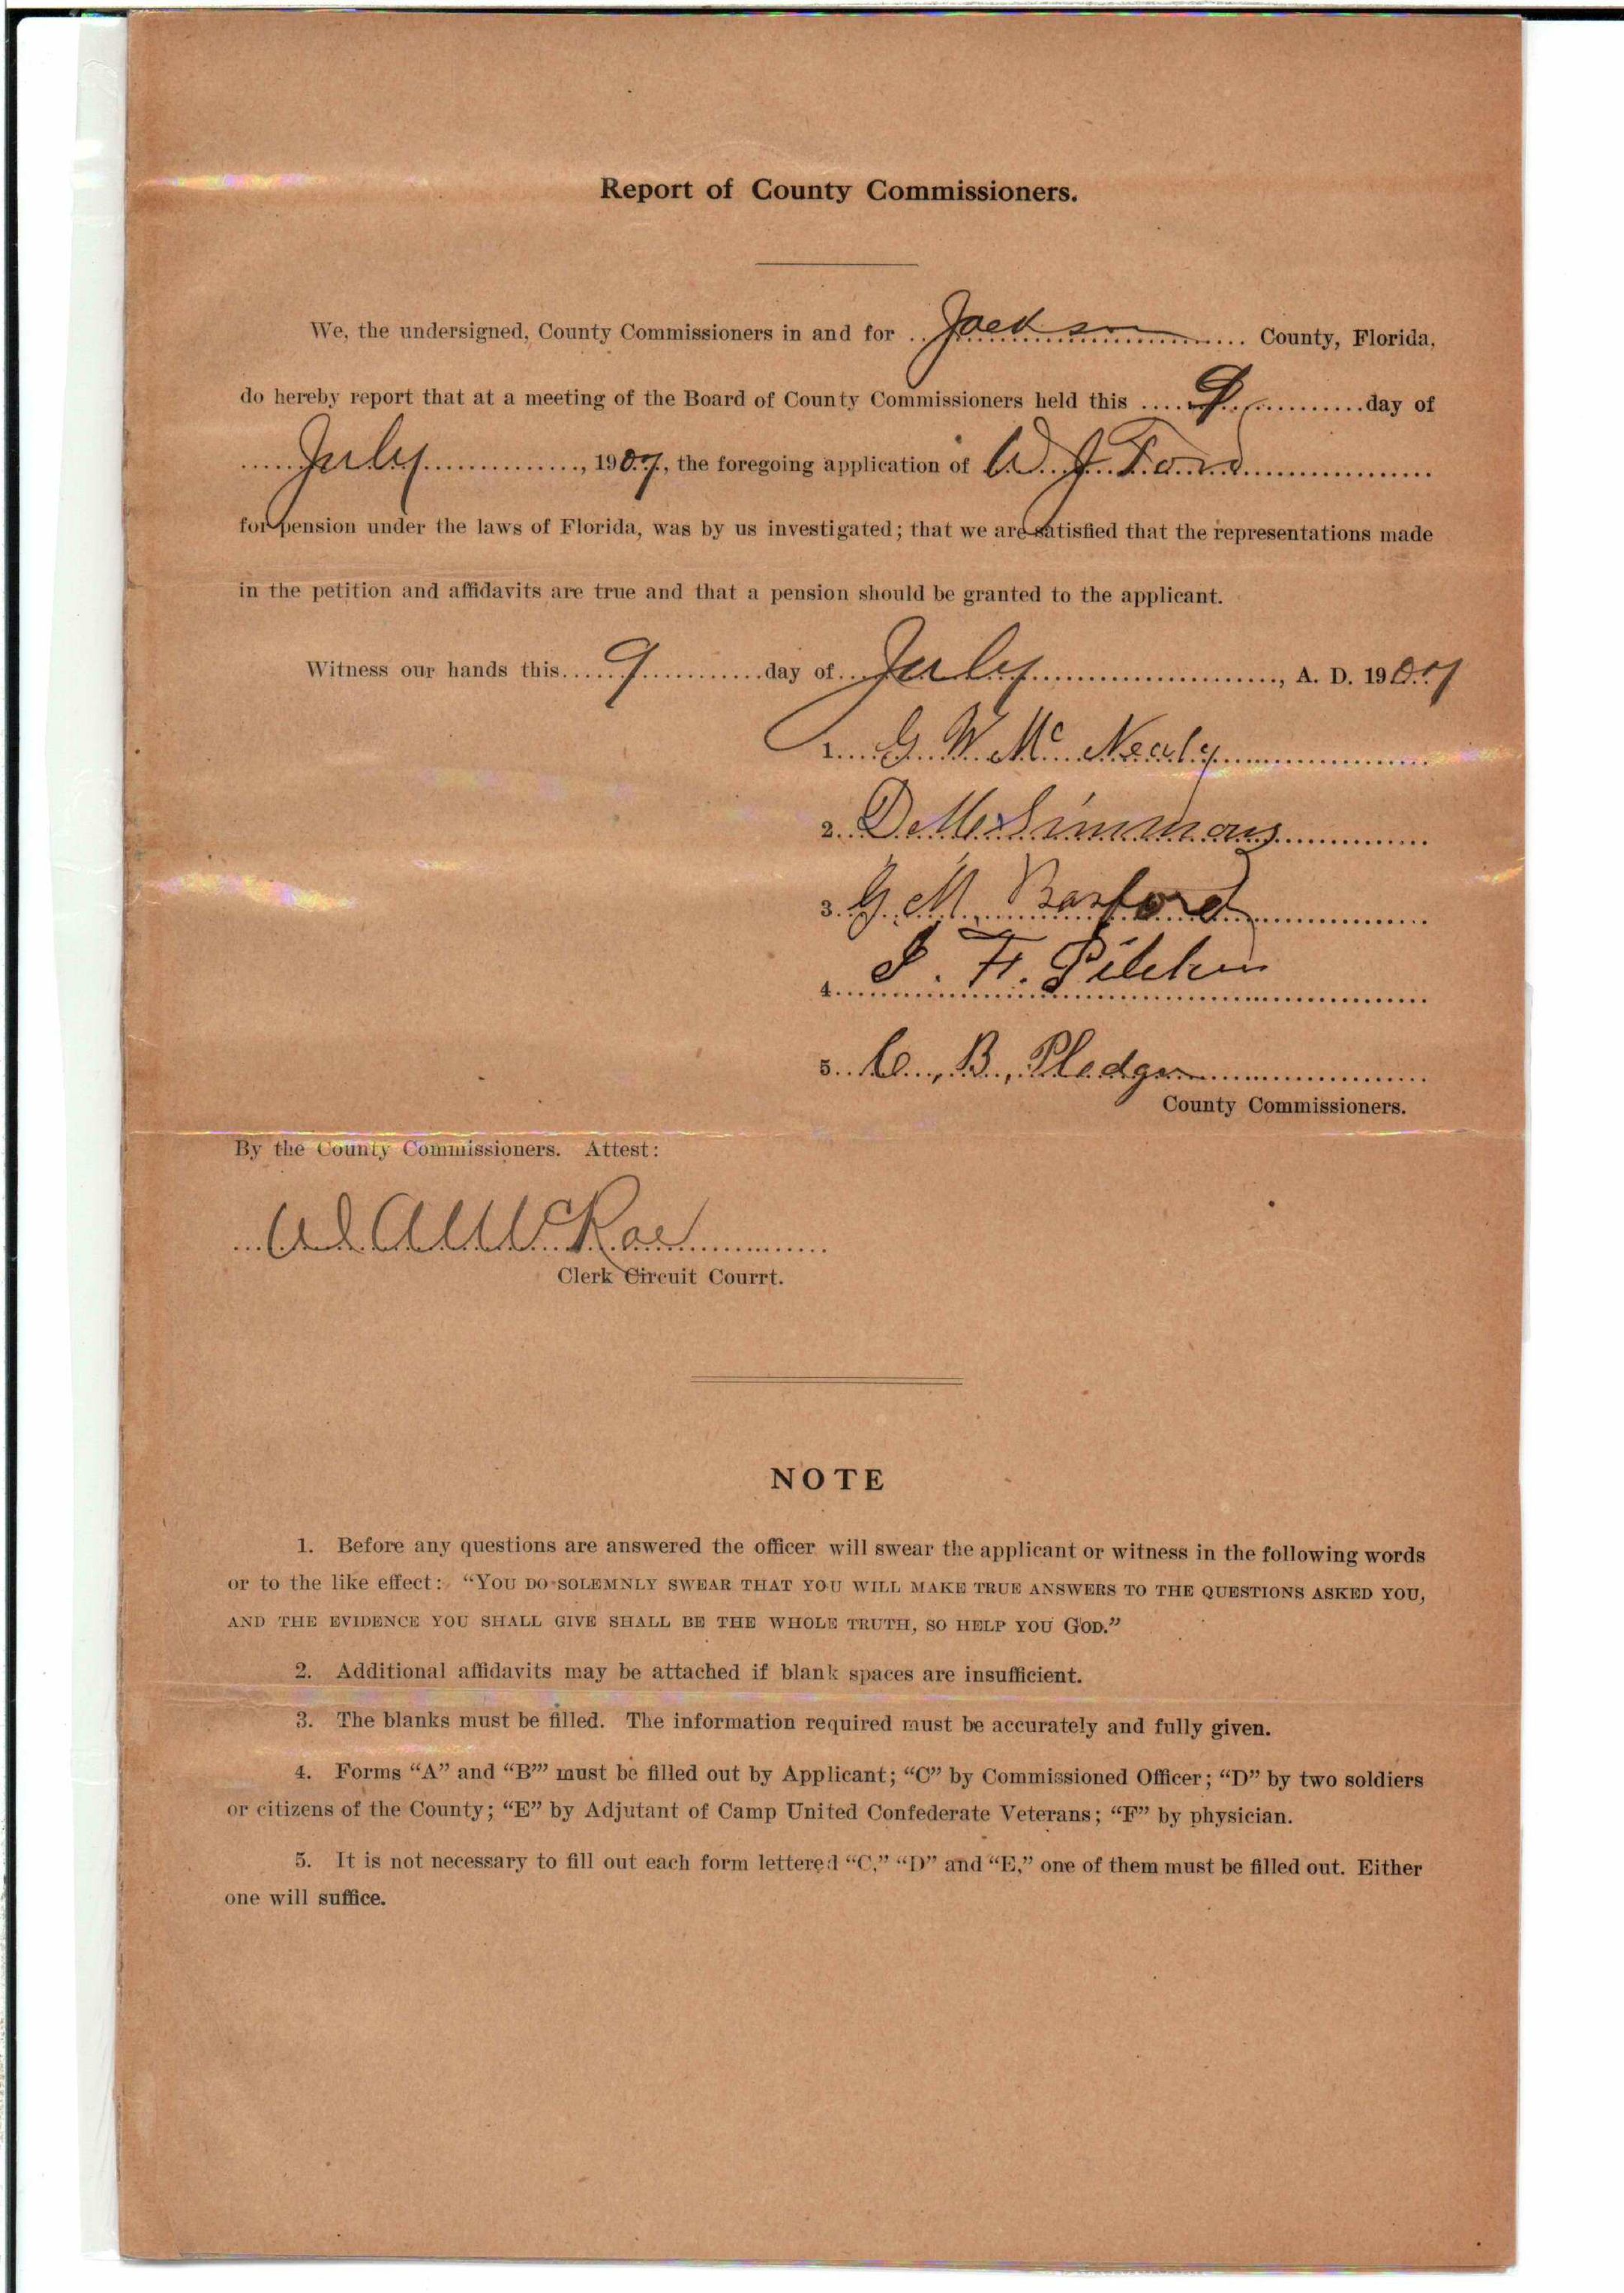 Report of County Commissioners.
We, the undersigned, County Commissioners in and for Jackson County, Florida,
do hereby report that at a meeting of the Board of County Commissioners held this 9 day of
July, 1907, the foregoing application of W. J. Ford
for pension under the laws of Florida, was by us investigated; that we are satisfied that the representations made
in the petition and affidavits are true and that a pension should be granted to the applicant.
Witness our hands this 9 day of July, A. D. 1907
1. G. W. Mc Nealy
2. Simmons
3. G. M. Basford
4. F.
5. C. B. Pledger
County Commissioners.
By the County Commissioners. Attest:
McRae
Clerk Circuit Courrt.
NOTE
1. Before any questions are answered the officer will swear the applicant or witness in the following words
or to the like effect: “YOU DO SOLEMNLY SWEAR THAT YOU WILL MAKE TRUE ANSWERS TO THE QUESTIONS ASKED YOU,
AND THE EVIDENCE YOU SHALL GIVE SHALL BE THE WHOLE TRUTH, SO HELP YOU GOD.”
2. Additional affidavits may be attached if blank spaces are insufficient.
3. The blanks must be filled. The information required must be accurately and fully given.
4. Forms “A” and “B”’ must be filled out by Applicant; “C” by Commissioned Officer; “D” by two soldiers
or citizens of the County; “E” by Adjutant of Camp United Confederate Veterans; “F” by physician.
5. It is not necessary to fill out each form lettered “C,” “D” and “E,” one of them must be filled out. Either
one will suffice.